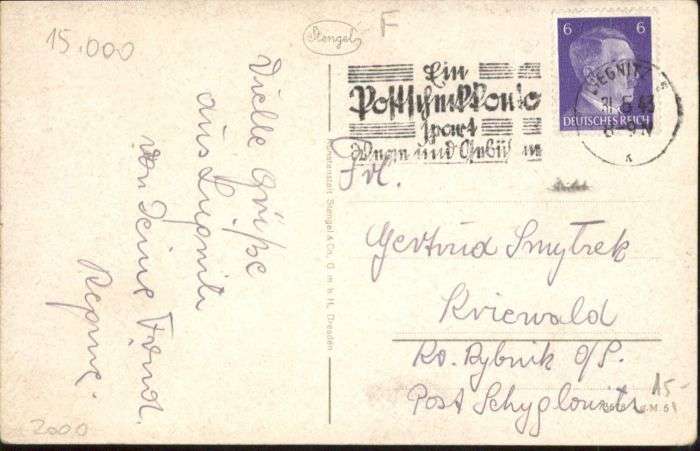 15.000
F
Stengel
Ein
Postscheckkonto
spart
Wege und Gebühren
6 6
DEUTSCHES REICH
LIEGNITZ
43
Vielle Grüße
aus Liegnitz
von Deine Freund.
Kunstanstalt Stengel & Co. G.m.b.H. Dresden
Frl.
Gertrud Smytrek
Kriewald
Kr. Rybnik O/S.
Post Schyglowitz
15-
2000